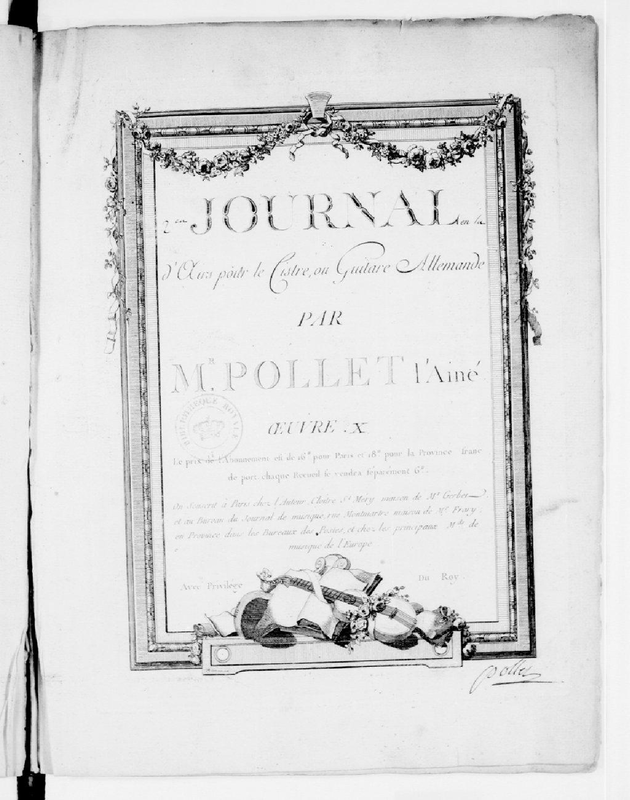 2.em JOURNAL en la
d'Œuvs pour le Cistre, ou Guitare Allemande
PAR
Mr. POLLET l'Ainé
ŒUVRE .X.
Le prix de l'Abonnement est de 16# pour Paris et 18# pour la Province franc
de port, chaque Recueil se vendra séparément 6#.
On Souscrit à Paris chez l'Auteur, Cloitre St. Mery maison de Mr. Gerbet
et au Bureau du Journal de musique, rue Montmartre maison de Mr.
en Province dans les Bureaux des Postes, et chez les principaux Mds. de
musique de l'Europe
Avec Privilege Du Roy
BIBLIOTHEQUE ROYALE
pollet